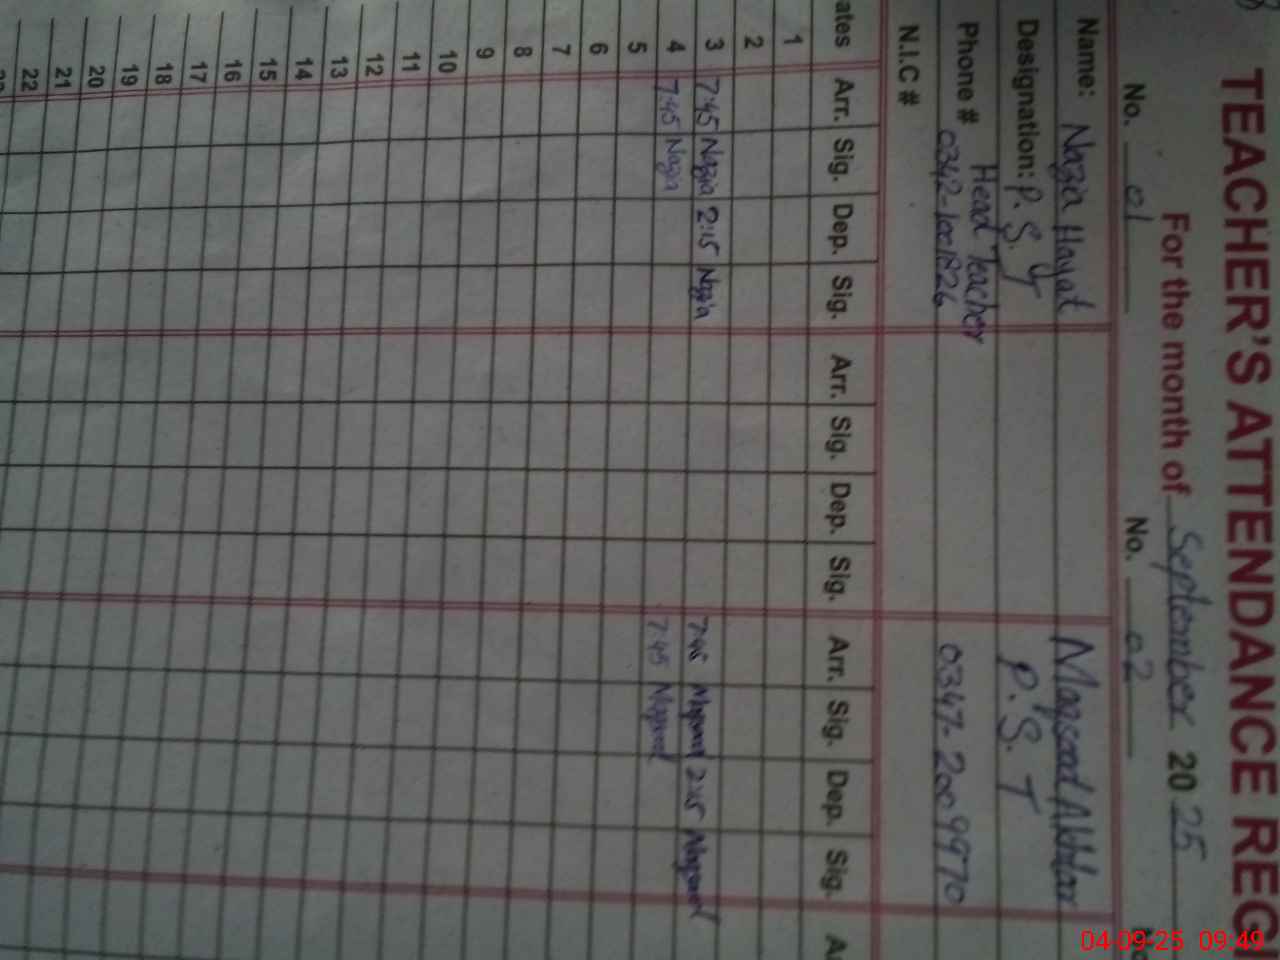 TEACHER'S ATTENDANCE REG
For the month of September 2025
No. 01 No. 02
Name: Nazia Hayat Maqsood Akhtar
Designation: P.S.T P.S.T
Head Teacher
Phone # 0342-1001826 0347-2009970
N.I.C #
ates Arr. Sig. Dep. Sig. Arr. Sig. Dep. Sig. Arr. Sig. Dep. Sig.
1
2
3 7:45 Nazia 2:15 Nazia 7:45 Maqsood 2:15 Maqsood
4 7:45 Nazia 7:45 Maqsood
5
6
7
8
9
10
11
12
13
14
15
16
17
18
19
20
21
22
04-09-25 09:49